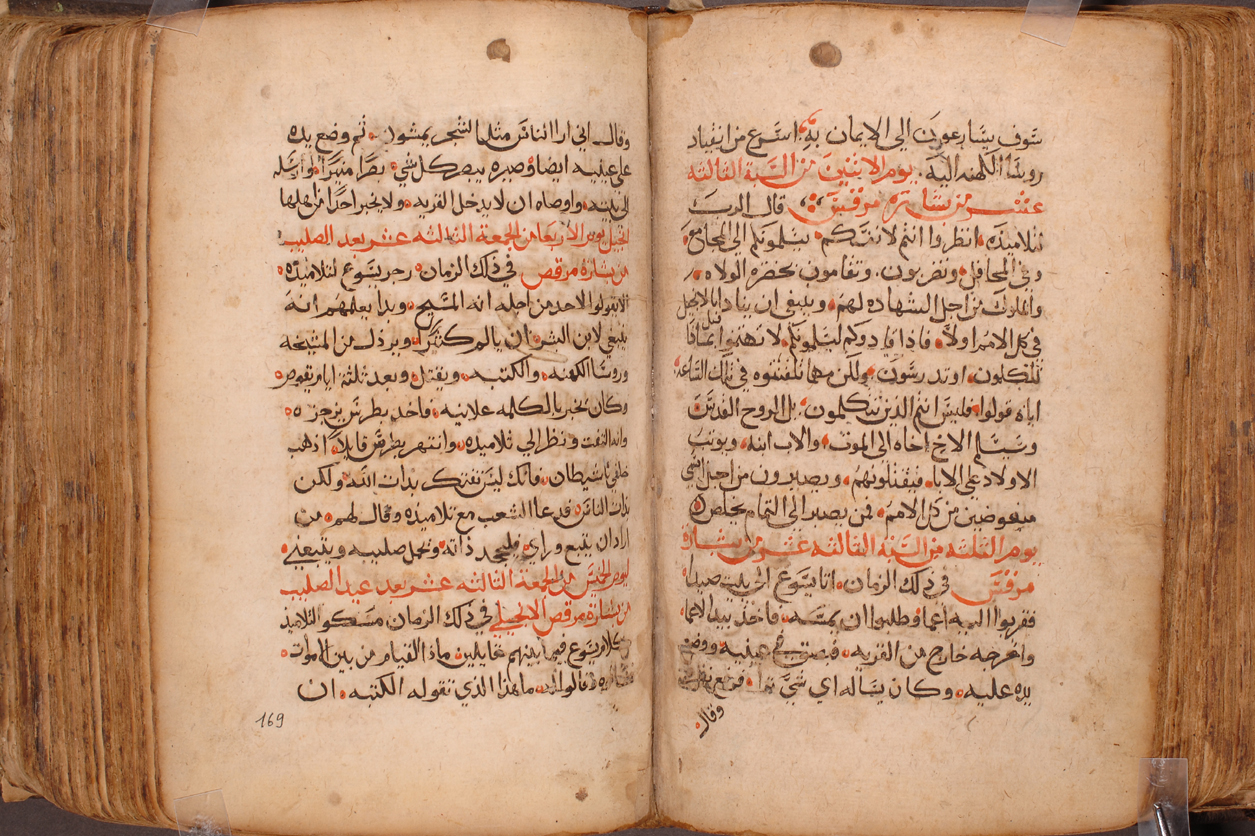 سوف يسارعون الى الايمان به استرع من انقياد
روسا الكهنه اليه. يوم الاثنين من السبة الثالثه
عشر من بشارة مرقس قال الرب
لتلاميذه انظروا انتم لانفسكم يسلمونكم الى المجامع
وفي المحافل وتضربون. وتقامون بحضره الولاه
والملوك من اجل الشهاده لهم وينبغي ان ينادا بالانجيل
قبل
في كل الامم اولاً فاذا قادوكم ليسلموكم لا تهتموا بماذا
تتكلمون او تدرسون ولكن مهما تلقنتوه في تلك الساعه
اياه قولوا فليس انتم الذين تتكلمون بل الروح القدس
وسيسلم الاخ اخاه الى الموت والاب ابنه ويوثب
الاولاد على الابا فيقتلونهم ويصيرون من اجل اسمي
مبغوضين من كل الامم فمن يصبر الى التمام يخلص
يوم الثلثه من السبة الثالثه عشر من بشارة
مرقس في ذلك الزمان اتا يسوع الى بيت صيدا
فقربوا اليه اعما وطلبوا ان يمسه فاخذ بيد الاعما
واخرجه خارج من القريه فبصق في عينيه ووضع
يده عليه وكان يساله اي شي ترا فرفع نظره
وقال
وقال اني ارا الناس مثل الشجر يمشون ثم وضع يده
على عينيه ايضا وصيره يبصر كل شي بصرا منيرا وارسله
الى بيته واوصاه ان لا يدخل القريه ولا يخبر احدا من اهلها
انجيل يوم الاربعا من الجمعة الثالثه عشر بعد الصليب
من بشارة مرقص في ذلك الزمان زجر يسوع لتلاميذه
الا يقولوا لاحد من اجله انه المسيح وبدا يعلمهم انه
ينبغي لابن البشر ان يالم كثيرا ويرذل من المشيخه
وروسا الكهنه والكتبه ويقتل وبعد ثلثه ايام يقوم
وكان يخبر بالكلمه علانيه فاخد بطرس يزجره
وانه التفت ونظر الى تلاميذه وانتهر بطرس قايلا اذهب
خلفي يا شيطان فانك ليس تفتكر بذات الله ولكن
بذات الناس فدعا الشعب مع تلاميذه وقال لهم من
اراد ان يتبع وراي فليجحد ذاته ويحمل صليبه ويتبعني
ليوم الخميس من الجمعة الثالثه عشر بعد عيد الصليب
من بشارة مرقص الانجيلي في ذلك الزمان مسكوا التلاميذ
كلام يسوع فيما بينهم قايلين ماذا القيام من بين الاموات
وقالوا له ما هذا الذي تقوله الكتبه ان
169